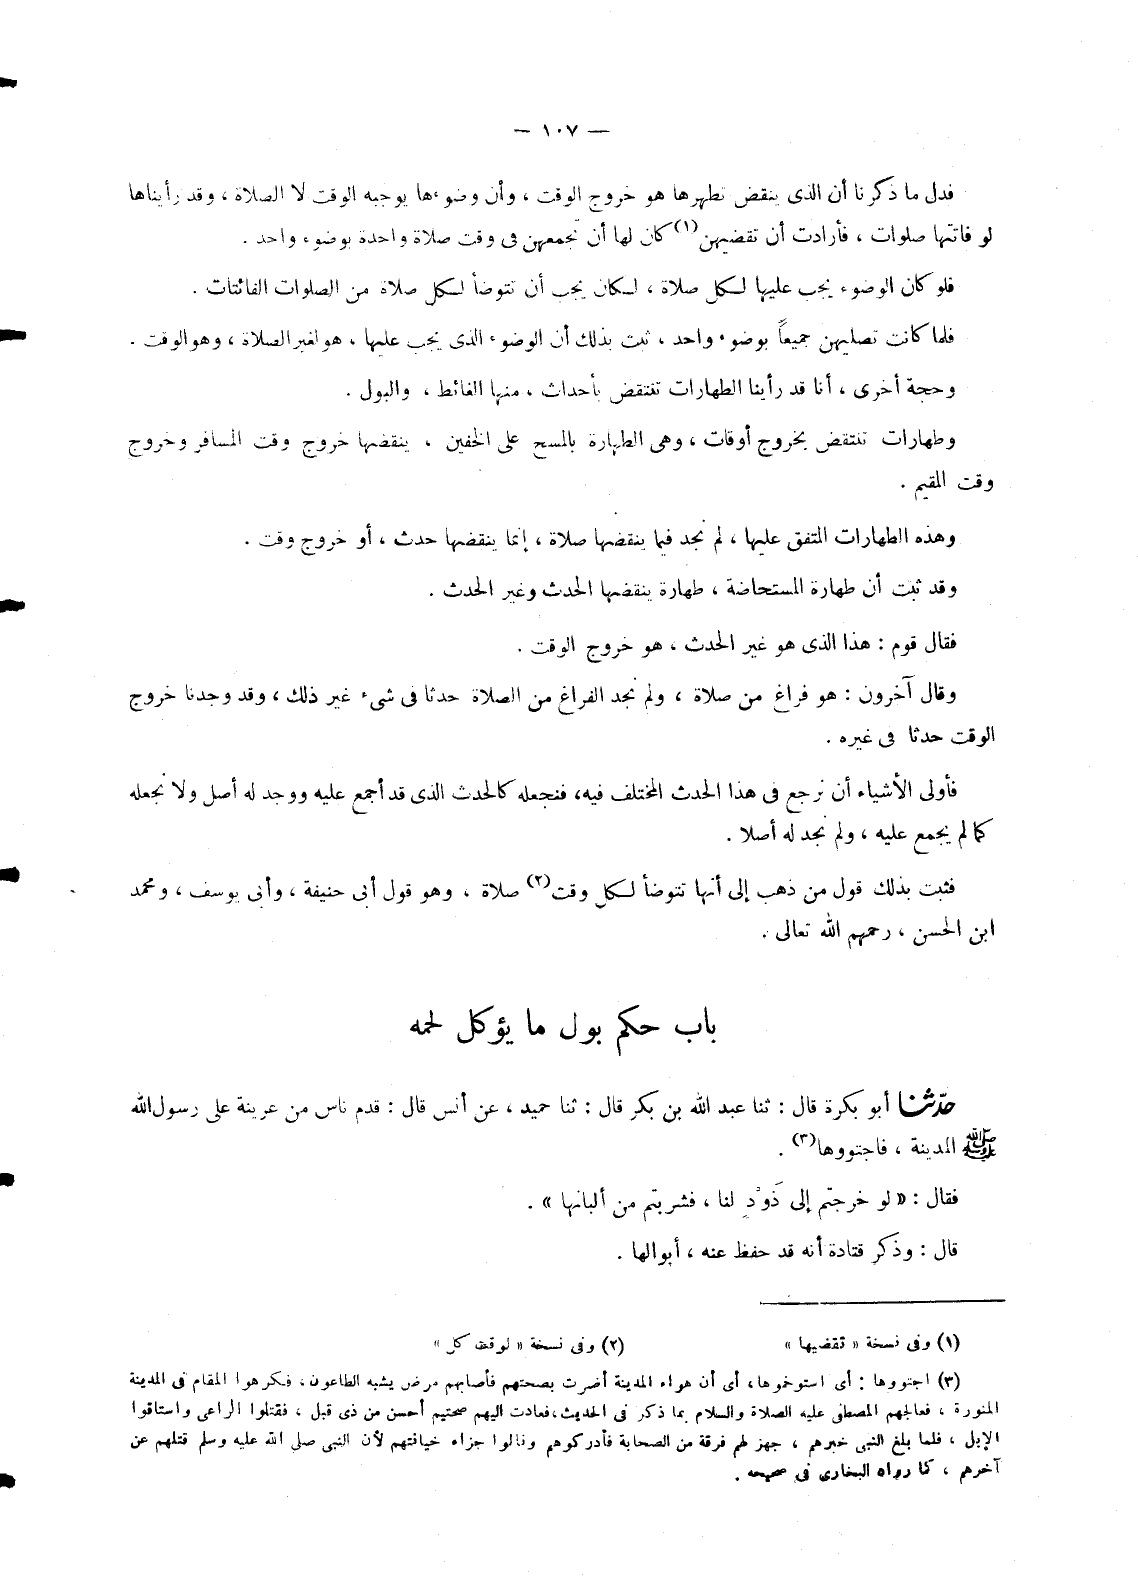 — ١٠٧ —
فدل ما ذكرنا أن الذى ينقض تطهرها هو خروج الوقت ، وأن وضوءها يوجبه الوقت لا الصلاة ، وقد رأيناها
لو فاتتها صلوات ، فأرادت أن تقضيهن(١) كان لها أن تجمعهن فى وقت صلاة واحدة بوضوء واحد .
فلو كان الوضوء يجب عليها لكل صلاة ، لكان يجب أن تتوضأ لكل صلاة من الصلوات الفائتات .
فلما كانت تصليهن جميعاً بوضوء واحد ، ثبت بذلك أن الوضوء الذى يجب عليها ، هو لغير الصلاة ، وهو الوقت .
وحجة أخرى ، أنا قد رأينا الطهارات تنتقض بأحداث ، منها الغائط ، والبول .
وطهارات تنتقض بخروج أوقات ، وهى الطهارة بالمسح على الخفين ، ينقضها خروج وقت المسافر وخروج
وقت المقيم .
وهذه الطهارات المتفق عليها ، لم نجد فيما ينقضها صلاة ، إنما ينقضها حدث ، أو خروج وقت .
وقد ثبت أن طهارة المستحاضة ، طهارة ينقضها الحدث وغير الحدث .
فقال قوم : هذا الذى هو غير الحدث ، هو خروج الوقت .
وقال آخرون : هو فراغ من صلاة ، ولم نجد الفراغ من الصلاة حدثا فى شىء غير ذلك ، وقد وجدنا خروج
الوقت حدثا فى غيره .
فأولى الأشياء أن نرجع فى هذا الحدث المختلف فيه، فنجعله كالحدث الذى قد أجمع عليه ووجد له أصل ولا نجعله
كما لم يجمع عليه ، ولم نجد له أصلا .
فثبت بذلك قول من ذهب إلى أنها تتوضأ لكل وقت(٢) صلاة ، وهو قول أبى حنيفة ، وأبى يوسف ، ومحمد
ابن الحسن ، رحمهم الله تعالى .
باب حكم بول ما يؤكل لحمه
حدّثنا أبو بكرة قال : ثنا عبد الله بن بكر قال : ثنا حميد ، عن أنس قال : قدم ناس من عرينة على رسول الله
ﷺ المدينة ، فاجتووها(٣) .
فقال : « لو خرجتم إلى ذَوْدٍ لنا ، فشربتم من ألبانها » .
قال : وذكر قتادة أنه قد حفظ عنه ، أبوالها .
(١) وفى نسخة « تقضيها » (٢) وفى نسخة « لوقت كل »
(٣) اجتووها : أى استوخموها، أى أن هواء المدينة أضرت بصحتهم فأصابهم مرض يشبه الطاعون، فكرهوا المقام فى المدينة
المنورة ، فعالجهم المصطفى عليه الصلاة والسلام بما ذكر فى الحديث،فعادت اليهم صحتهم أحسن من ذى قبل ، فقتلوا الراعى واستاقوا
الإبل ، فلما بلغ النبى خبرهم ، جهز لهم فرقة من الصحابة فأدركوهم ونالوا جزاء خيانتهم لأن النبى صلى الله عليه وسلم قتلهم عن
آخرهم ، كما رواه البخارى فى صحيحه .